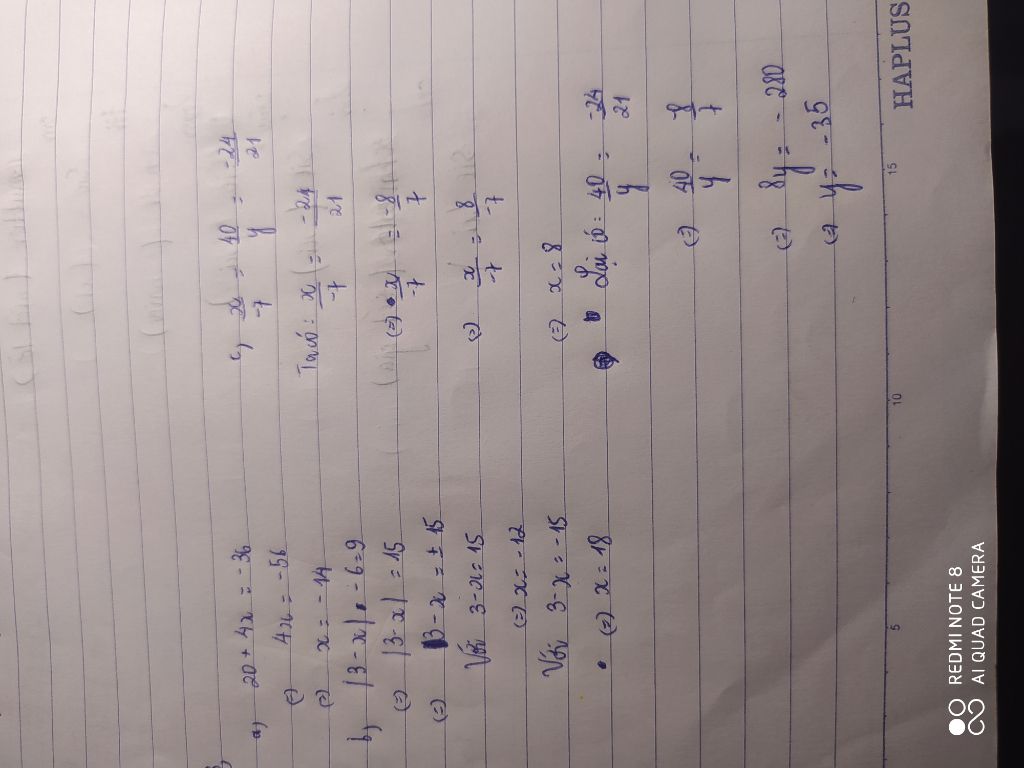 a) 20 + 4x = -36
(=) 4x = -56
(=) x = -14
b) |3 - x| - 6 = 9
(=) |3 - x| = 15
(=) 3 - x = ± 15
Với 3 - x = 15
(=) x = -12
Với 3 - x = -15
(=) x = 18
c) x/-7 = 40/y = -24/21
Ta có: x/-7 = -24/21
(=) x/-7 = -8/7
(=) x/-7 = 8/-7
(=) x = 8
Lại có: 40/y = -24/21
(=) 40/y = -8/7
(=) 8y = -280
(=) y = -35
5 10 15
HAPLUS
REDMI NOTE 8
AI QUAD CAMERA